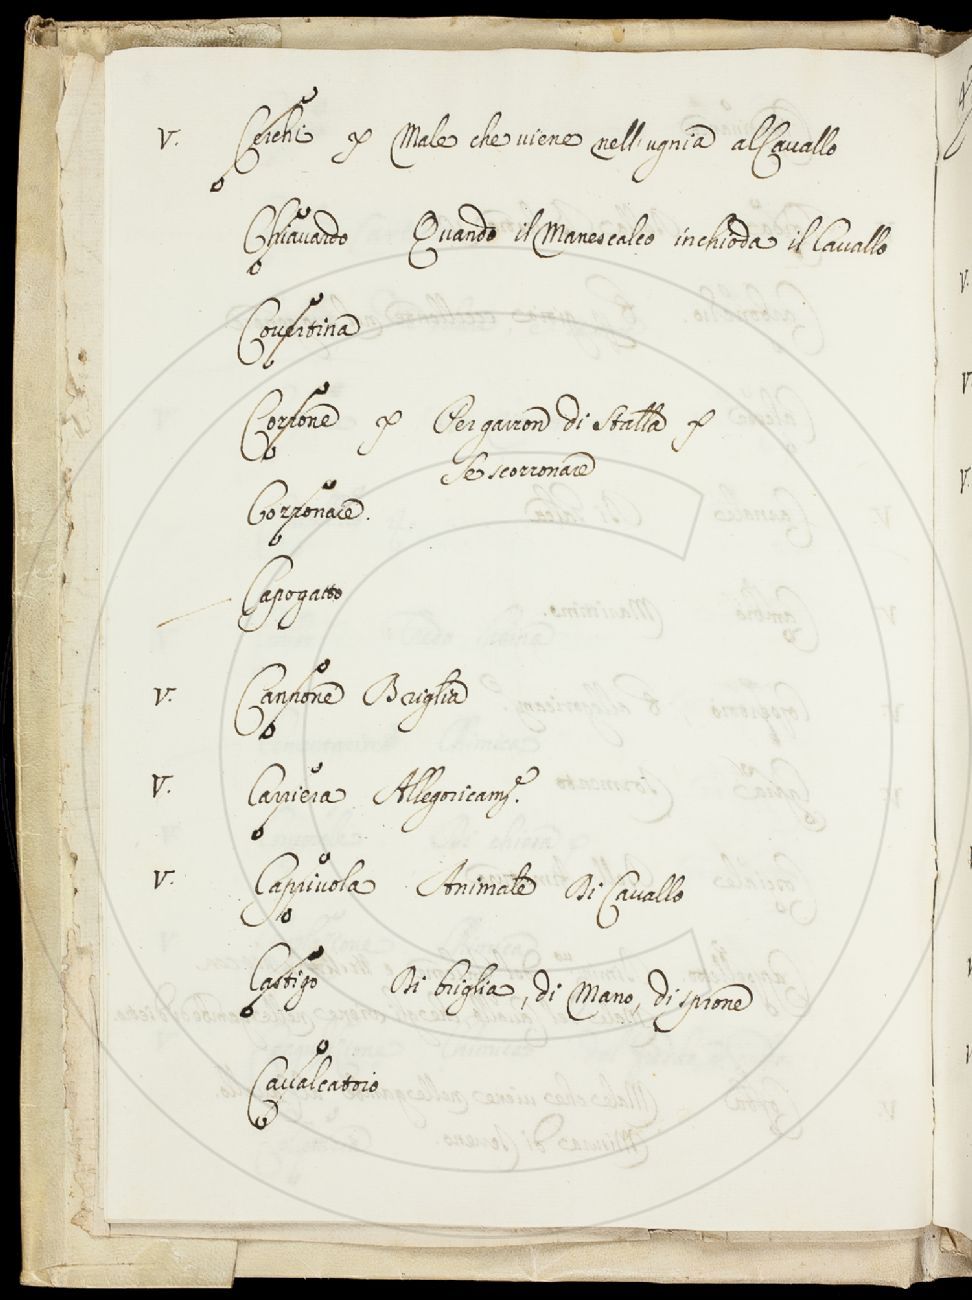 V. Cerchi p Male che viene nell'ugnia al Cavallo
Chiavardo Quando il Manescalco inchioda il Cavallo
Covertina
Corsone p Per garron di stalla p
se scorronare
Corronare.
Capogatto
V. Canzone Briglia
V. Carriera Allegoricamte.
V. Capriuola Animale Di Cavallo
Castigo Di briglia, di Mano, di sprone
Cavalcatoio
V.
V.
V.